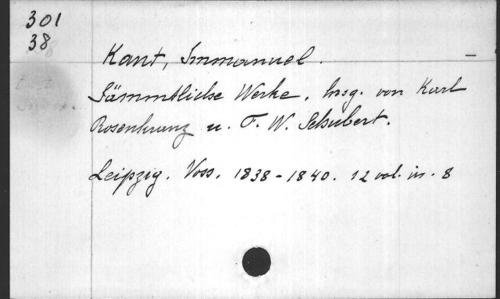 301
38
Kant, Immanuel.
Sämmtliche Werke, hrsg. von Karl
Rosenkranz u. F. W. Schubert.
Leipzig. Voss. 1838-1840. 12 vol. in-8